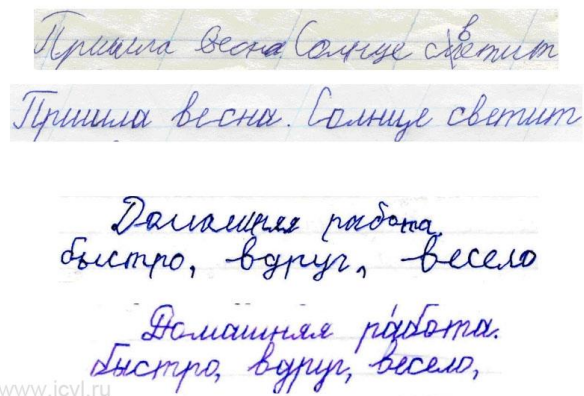 Пришла весна. Солнце светит
Пришла весна. Солнце светит
Домашняя работа.
быстро, вдруг, весело
Домашняя работа.
быстро, вдруг, весело,
www.icvl.ru